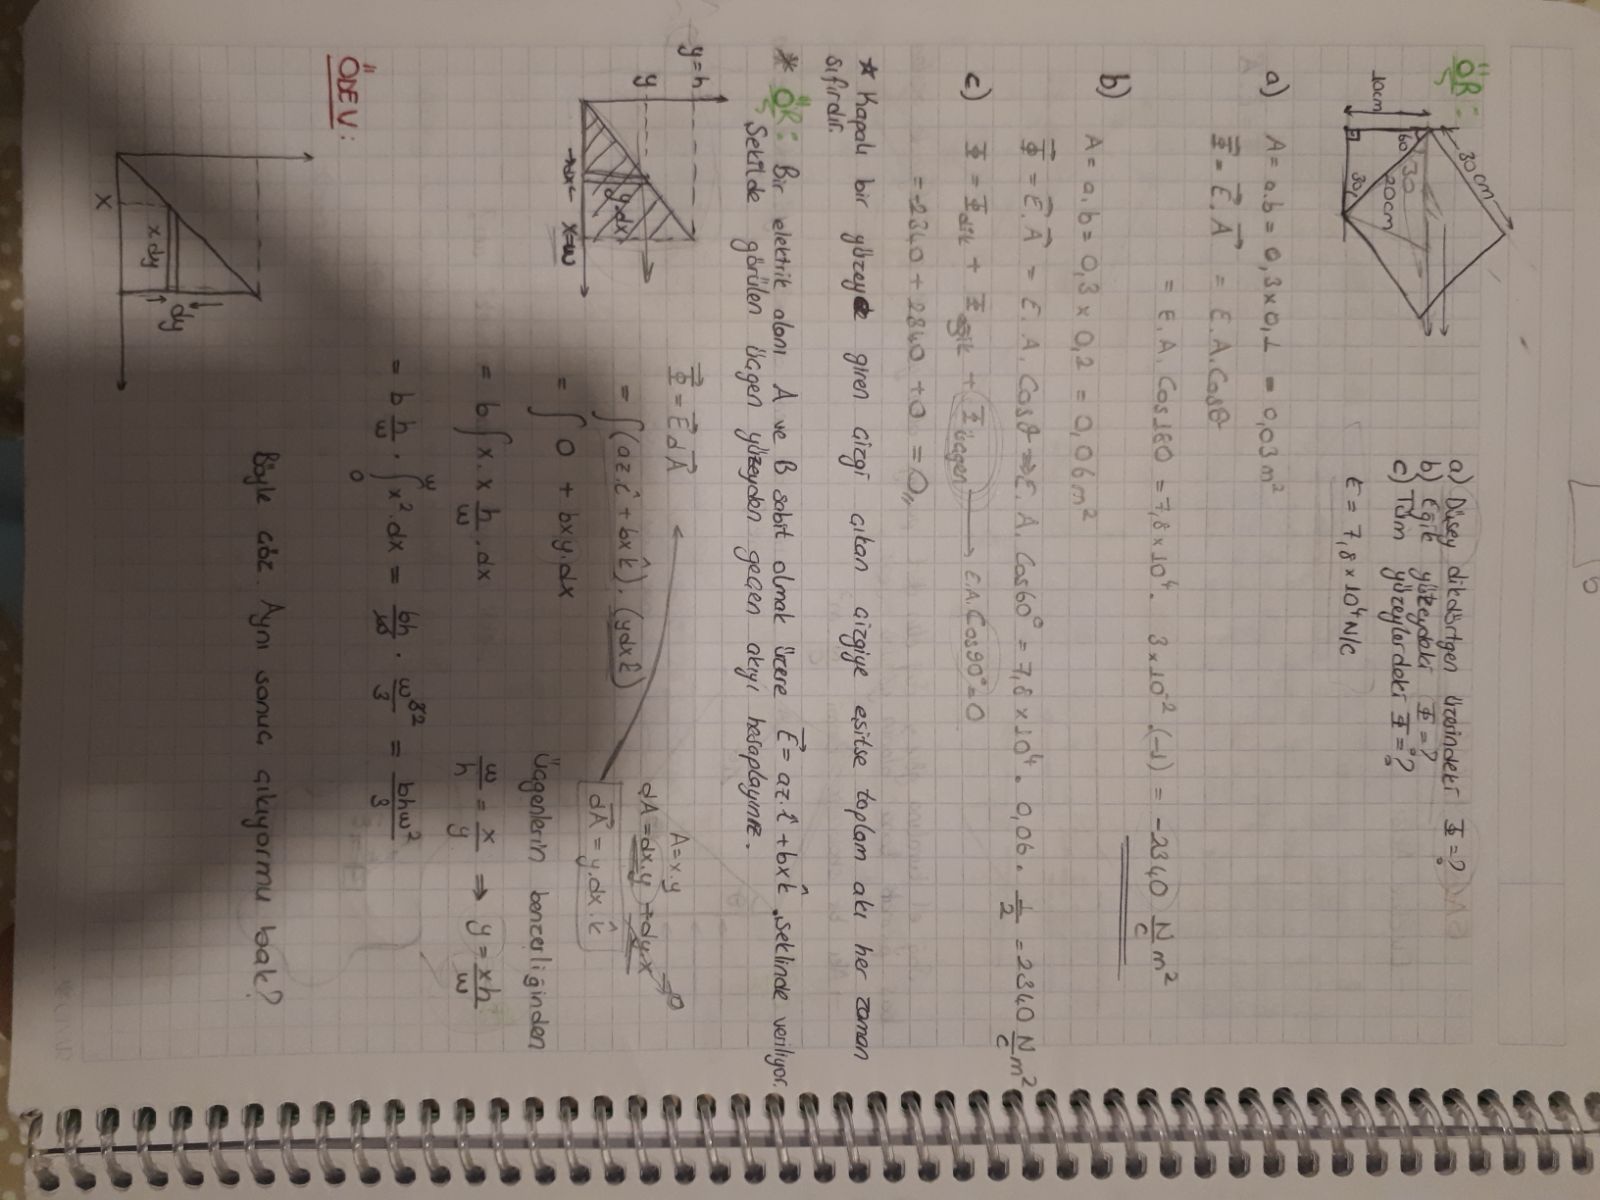 ÖR:
30cm
60
30
20cm
10cm
30
a) Düşey dikdörtgen üzerindeki Φ=?
b) Eğik yüzeydeki Φ=?
c) Tüm yüzeylerdeki Φ=?
E = 7,8×10⁴ N/C
a) A= a.b = 0,3×0,1 = 0,03 m²
Φ = E.A = E.A.Cosθ
= E.A. Cos180 = 7,8×10⁴. 3×10⁻² .(-1) = -2340 N/C m²
b)
A= a.b = 0,3 × 0,2 = 0,06 m²
Φ = E.A = E.A. Cosθ ⇒ E.A. Cos60° = 7,8×10⁴ . 0,06 . 1/2 = 2340 N/C m²
c) Φ = Φdik + Φeğik + Φüçgen → E.A.Cos90°=0
=-2340 + 2340 +0 = 0,,
☆ Kapalı bir yüzeyde giren çizgi çıkan çizgiye eşitse toplam akı her zaman
sıfırdır.
* ÖR: Bir elektrik alanı A ve B sabit olmak üzere E= az.î + bxk̂ .şeklinde veriliyor.
Şekilde görülen üçgen yüzeyden geçen akıyı hesaplayınız.
y=h
y
y.dx
→dx←
x=w
Φ = E dA
A=x.y
dA = dx.y + dy.x → 0
= ∫(az.î + bxk̂).(ydxk̂)
dA = y.dx.k̂
= ∫ 0 + bxy.dx
Üçgenlerin benzerliğinden
= b∫x.x h/w .dx
w/h = x/y ⇒ y = xh/w
= b h/w . ∫₀ʷ x².dx = bh/w . w³²/3 = bhw²/3
ÖDEV:
Böyle çöz. Aynı sonuç çıkıyormu bak?
dy
x dy
x